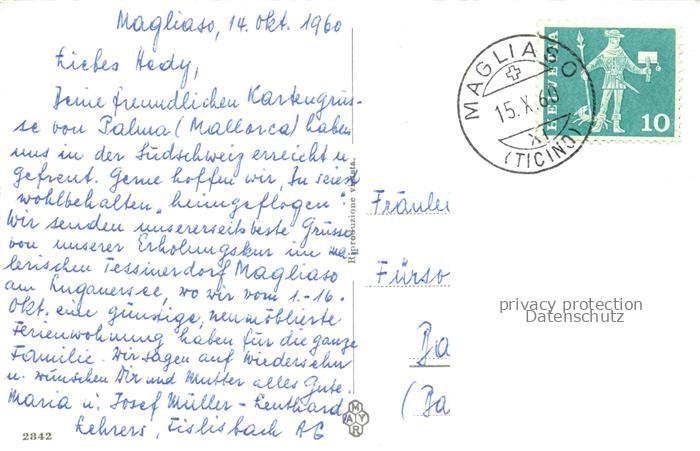 Magliaso, 14. Okt. 1960
Liebes Hedy,
Deine freundlichen Kartengrüs-
se von Palma (Mallorca) haben
uns in der Südschweiz erreicht u.
gefreut. Gerne hoffen wir, Du seiest
wohlbehalten „heimgeflogen".
Wir senden unsererseits beste Grüsse
von unserer Erholungskur im ma-
lerischen Tessinerdorf Magliaso
am Luganersee, wo wir vom 1.-16.
Okt. eine günstige, neumöblierte
Ferienwohnung haben für die ganze
Familie. Wir sagen auf Wiedersehn
u. wünschen Dir und Mutter alles Gute.
Maria u. Josef Müller-Leuthard
Lehrers, Fislisbach AG
2842
Riproduzione vietata.
MAYR
MAGLIASO
15.X.60
(TICINO)
HELVETIA
10
Fräulei
Fürso
Ba
(Ba
privacy protection
Datenschutz